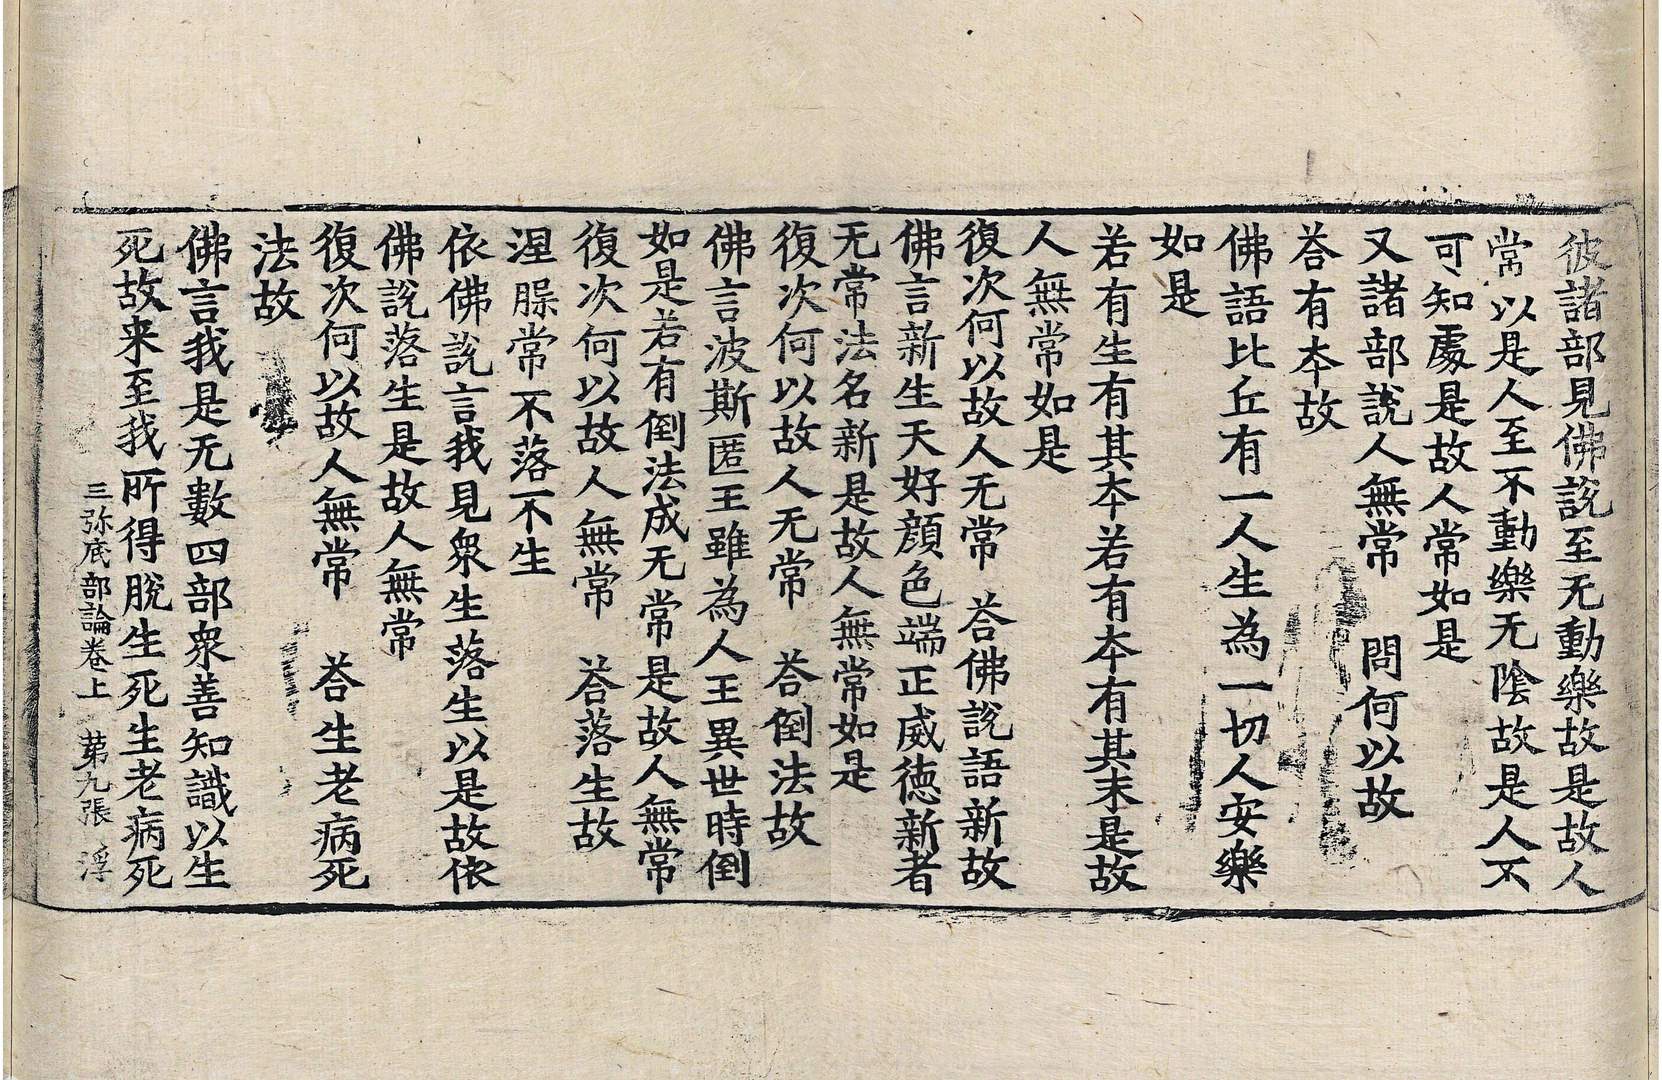 彼諸部見佛說至无動樂故是故人
常以是人至不動樂无陰故是人不
可知處是故人常如是
又諸部說人無常　問何以故
荅有本故
佛語比丘有一人生為一切人安樂
如是
若有生有其本若有本有其末是故
人無常如是
復次何以故人无常　荅佛說語新故
佛言新生天好顏色端正威德新者
无常法名新是故人無常如是
復次何以故人无常　荅倒法故
佛言波斯匿王雖為人王異世時倒
如是若有倒法成无常是故人無常
復次何以故人無常　荅落生故
涅槃常不落不生
依佛說言我見衆生落生以是故依
佛說落生是故人無常
復次何以故人無常　荅生老病死
法故
佛言我是无數四部衆善知識以生
死故来至我所得脫生死生老病死
三弥底部論卷上　苐九張　浮